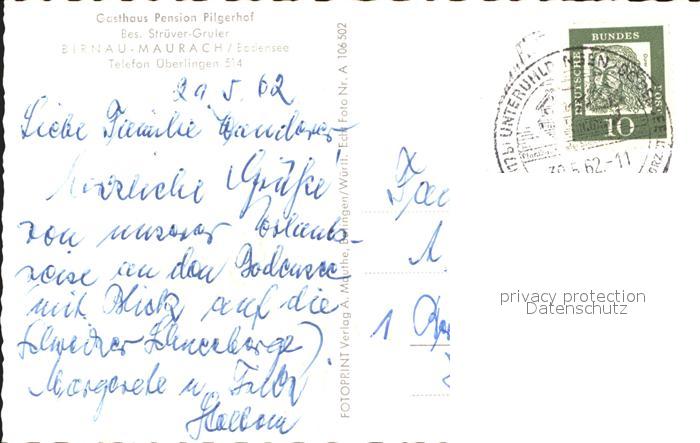 Gasthaus Pension Pilgerhof
Bes. Strüver-Gruler
BIRNAU-MAURACH/Bodensee
Telefon Überlingen 514
29.5.62
Liebe Familie
Herzliche Grüße
von unserer Urlaubs-
reise an den Bodensee
(mit Blick auf die
Schweizer Schneeberge).
Margarete u.
FOTOPRINT Verlag A. Mauthe, Bölingen/Württ. Echt Foto Nr. A 106 502
DEUTSCHE
BUNDES
10
UNTERUHLDINGEN
30.5.62.-11
1
privacy protection
Datenschutz